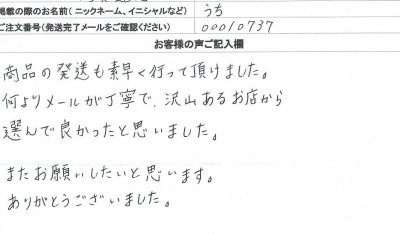 掲載の際のお名前(ニックネーム、イニシャルなど) うち
ご注文番号(発送完了メールをご確認ください) 00010737
お客様の声ご記入欄
商品の発送も素早く行って頂けました。
何よりメールが丁寧で、沢山あるお店から
選んで良かったと思いました。
またお願いしたいと思います。
ありがとうございました。